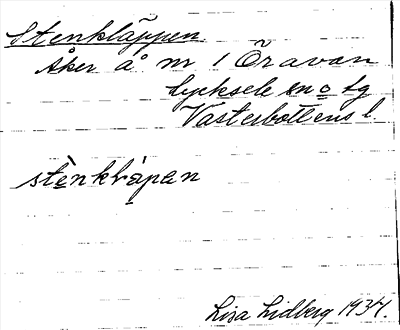 Stenkläppen
Åker å nr 1 Öravan
Lycksele sn o tg
Västerbottens l.
stènkl
Lisa Lidberg 1937.